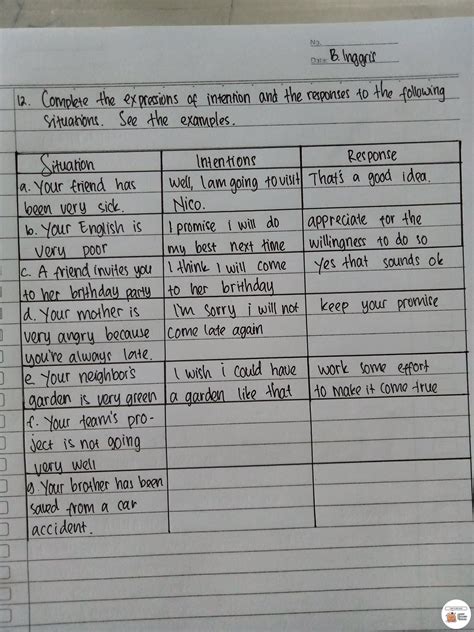 No.
Date B. Inggris
12. Complete the expresions of intention and the responses to the following
situations. See the examples.
Situation Intentions Response
a. Your friend has well, I am going to visit That's a good idea.
been very sick. Nico.
b. Your English is I promise i will do appreciate for the
very poor my best next time willingness to do so
c. A friend invites you I think I will come yes that sounds ok
to her brithday party to her birthday
d. Your mother is I'm sorry i will not keep your promise
very angry because come late again
you're always late.
e. Your neighbor's I wish i could have work some effort
garden is very green a garden like that to make it come true
f. Your team's pro-
ject is not going
very well
g. Your brother has been
saved from a car
accident.